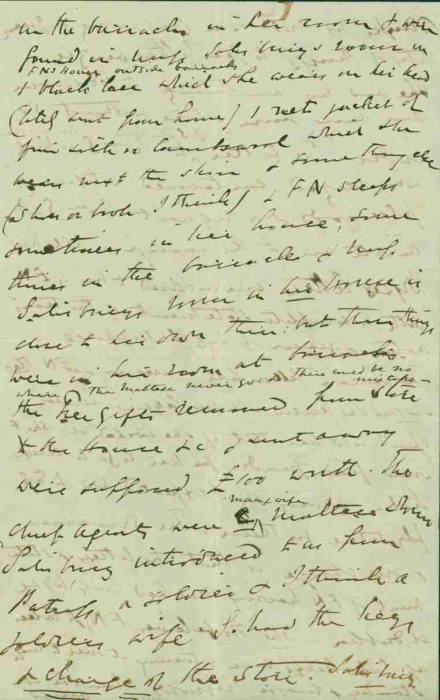 in the barracks in her room & were
found in Miss Salisburys room in
FNs House outside barracks
& black lace which she wears on her head
(lately sent from home) 1 net jacket of
fine silk or
wears next the skin & something else
(a shoe or book I think) & FN sleeps
sometimes in her house, some
times in the barracks & Miss
Salisburys room in her house is
close to her own there: but these things
were in her room at barracks
where the Maltese never go so there could be no mistake –
the Free Gifts removed from Store
& the House &c & sent away
were supposed £100 worth. The
man & wife
chief agents were Maltese whom
Salisbury introduced to us from
a soldier & I think a
soldiers wife S. had the keys
& charge of the Store. Salisbury